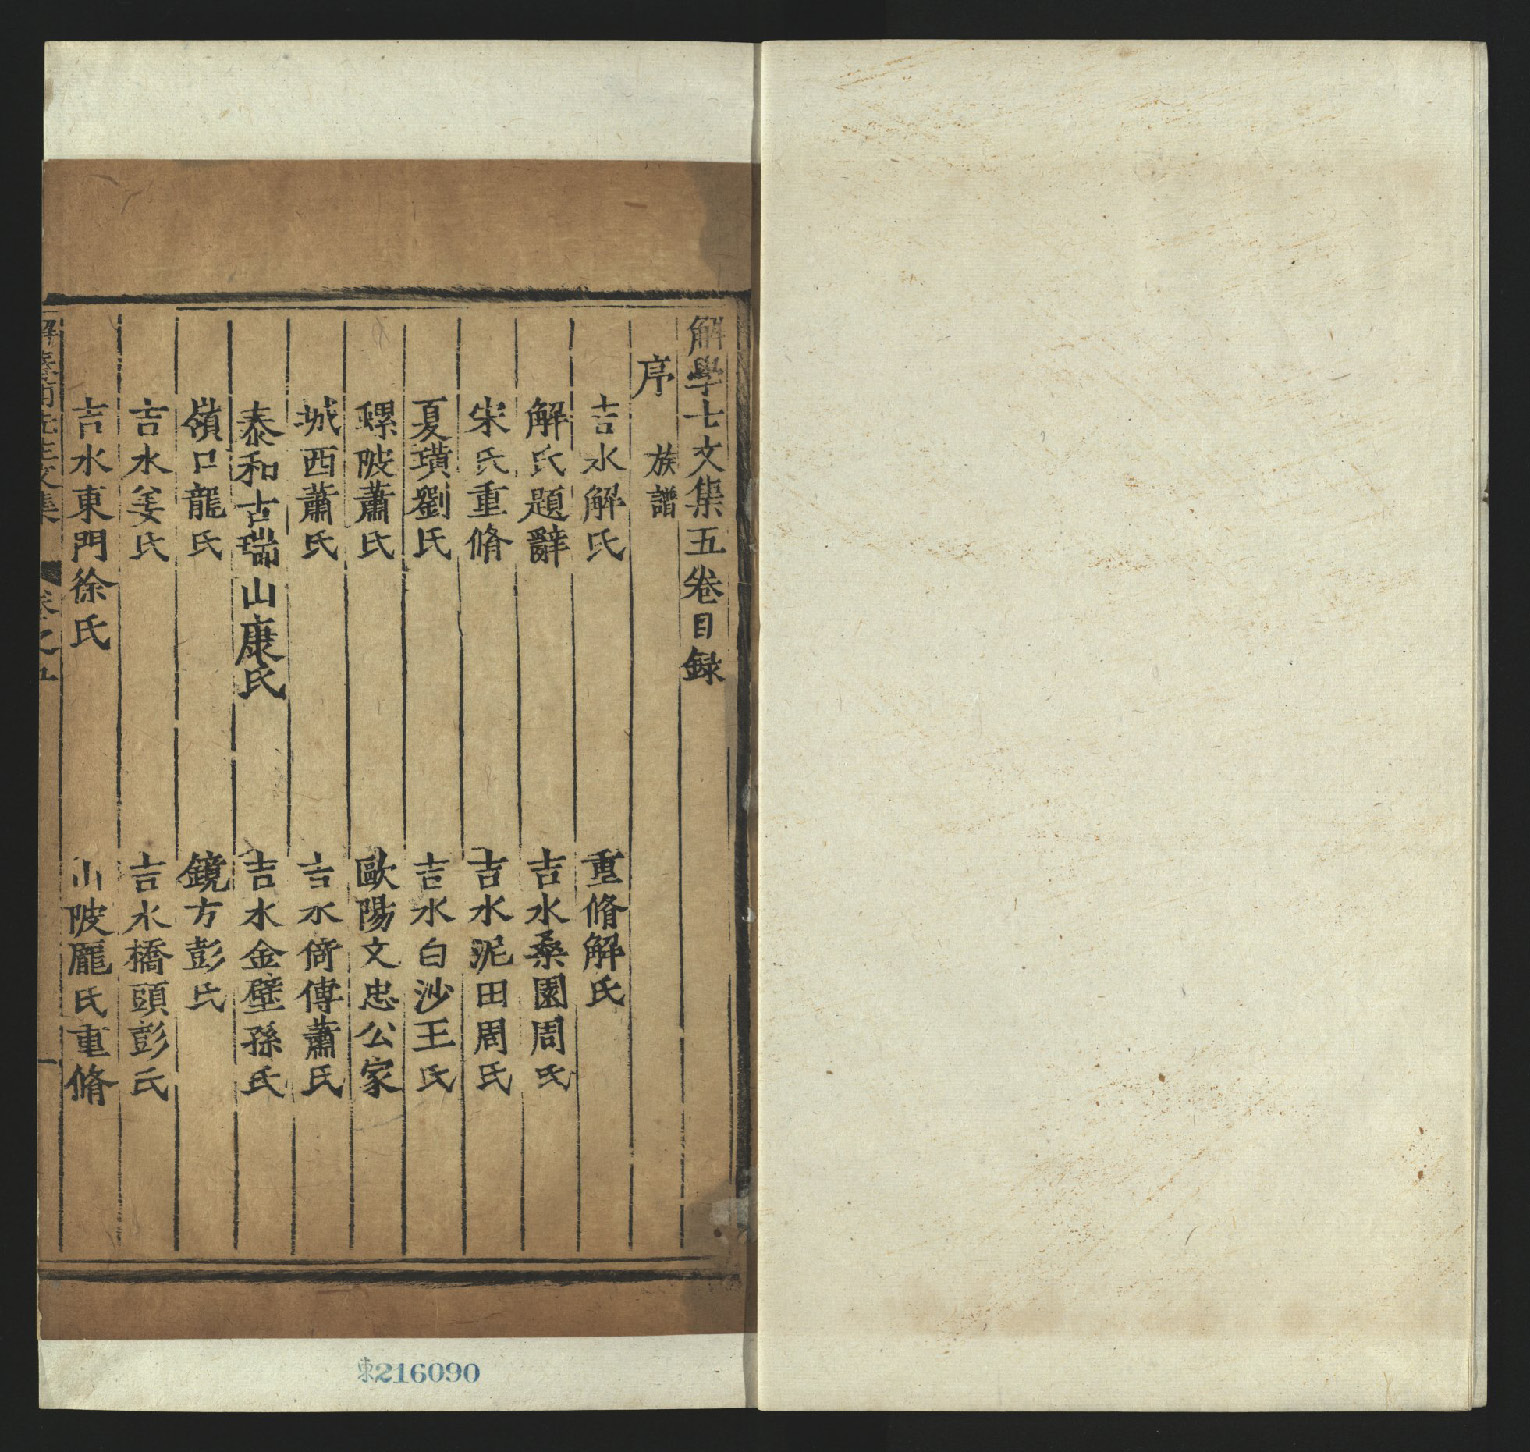 解學士文集五卷目録
序
族譜
吉水解氏
重脩解氏
解氏題辭
吉水桑園周氏
宋氏重脩
吉水泥田周氏
夏璜劉氏
吉水白沙王氏
螺陂蕭氏
歐陽文忠公家
城西蕭氏
吉水倚傳蕭氏
泰和古瑞山康氏
吉水金壁孫氏
嶺口龍氏
鏡方彭氏
吉水姜氏
吉水橋頭彭氏
吉水東門徐氏
山陂龎氏重脩
文集
卷之五
一
東216090